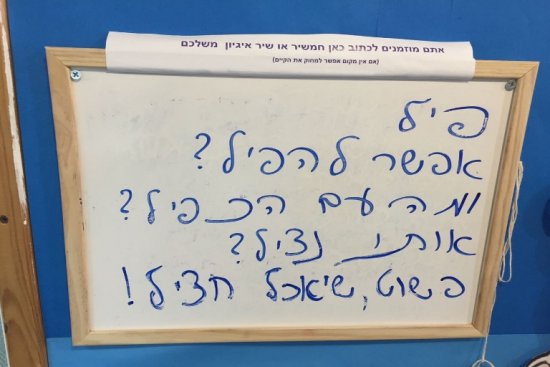 אתם מוזמנים לכתוב כאן חמשיר או שיר איגיון משלכם
(אם אין מקום אפשר למחוק את הקיים)
פיל
אפשר להפיל?
ומה עם הכפיל?
אותו נציל?
פשוט, שיאכל חציל!